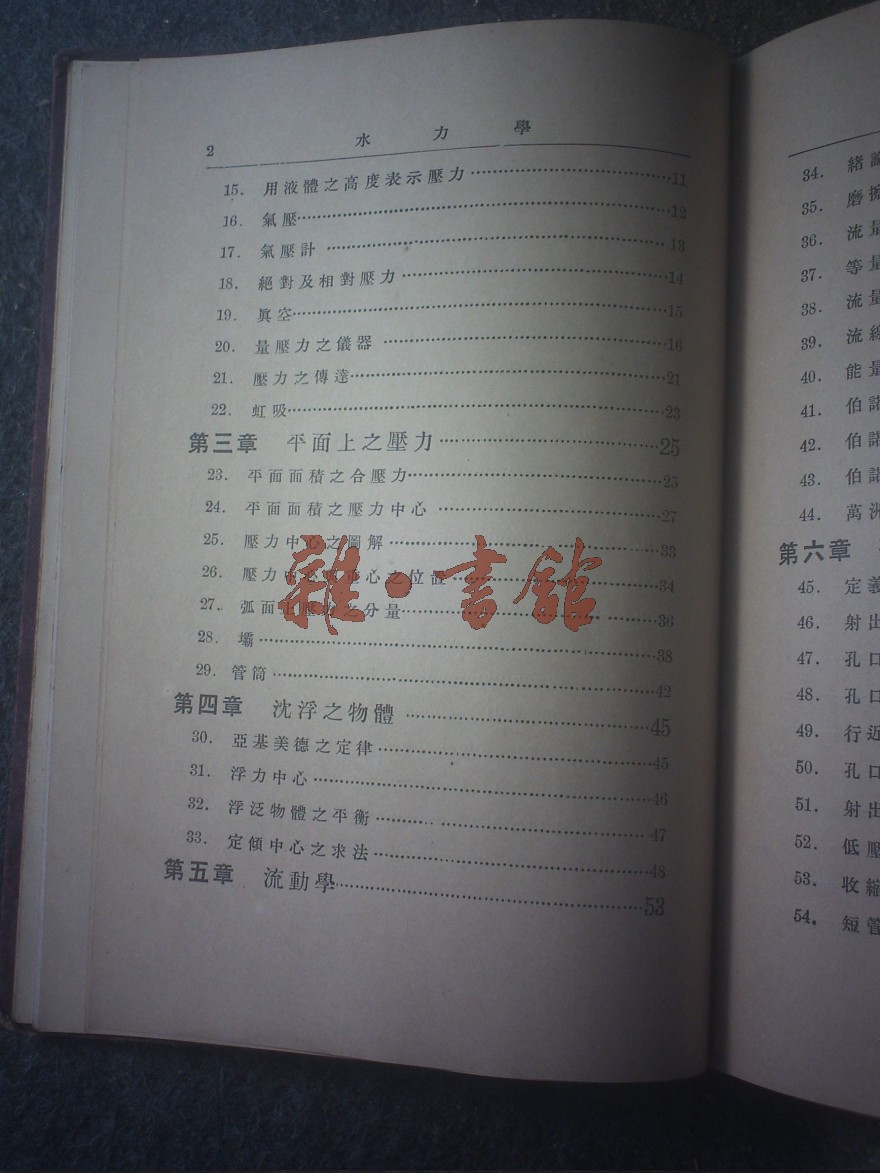 2 水力學
15. 用液體之高度表示壓力 11
16. 氣壓 12
17. 氣壓計 13
18. 絕對及相對壓力 14
19. 眞空 15
20. 量壓力之儀器 16
21. 壓力之傳達 21
22. 虹吸 23
第三章 平面上之壓力 25
23. 平面面積之合壓力 25
24. 平面面積之壓力中心 27
25. 壓力中心之圖解 33
26. 壓力中心 心之位置 34
27. 弧面上壓力之分量 36
28. 壩 38
29. 管筒 42
第四章 沈浮之物體 45
30. 亞基美德之定律 45
31. 浮力中心 46
32. 浮泛物體之平衡 47
33. 定傾中心之求法 48
第五章 流動學 53
雜·書館
34. 緒論
35. 磨
36. 流量
37. 等量
38. 流量
39. 流線
40. 能量
41. 伯諾
42. 伯諾
43. 伯諾
44. 萬洲
第六章
45. 定義
46. 射出
47. 孔口
48. 孔口
49. 行近
50. 孔口
51. 射出
52. 低壓
53. 收縮
54. 短管